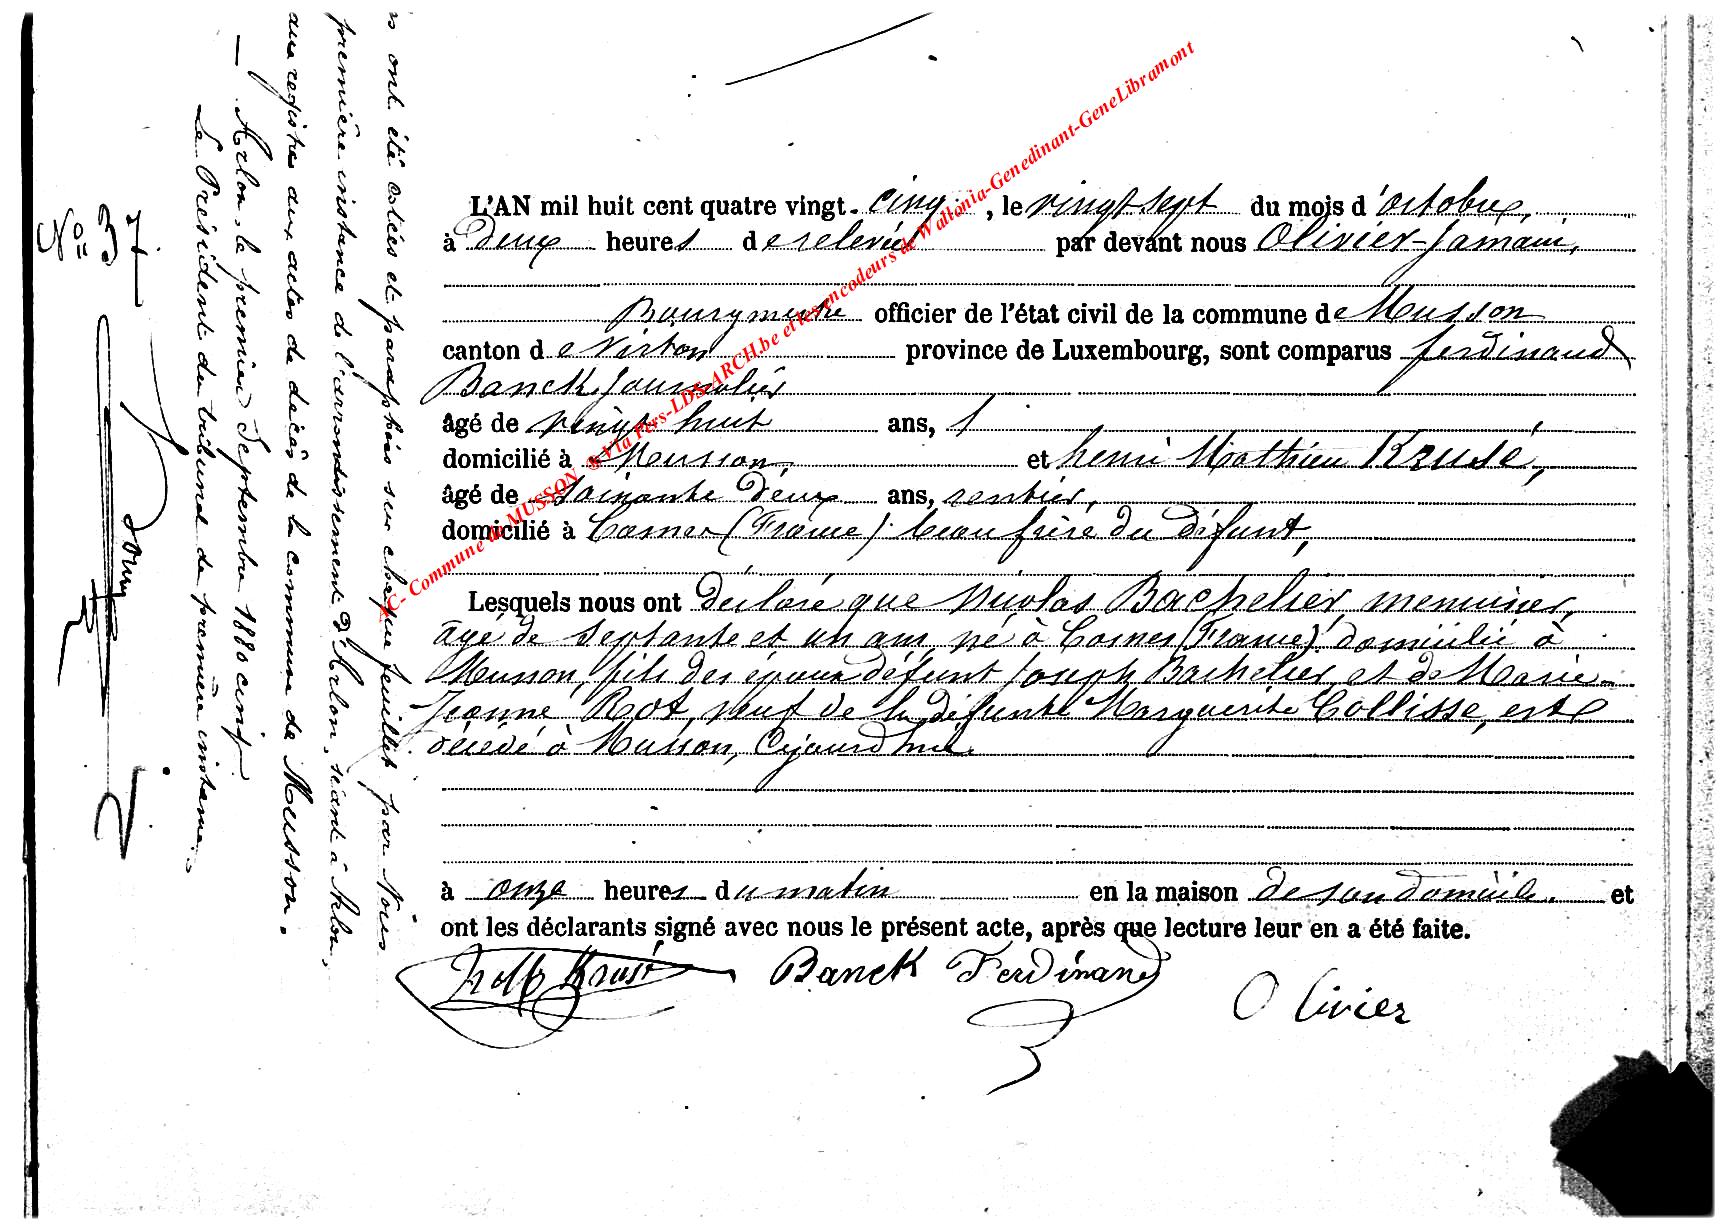 L'AN mil huit cent quatre vingt. cinq, le vingt sept du mois d'octobre,
à deux heures de relevée par devant nous Olivier-Jamain,
Bourgmestre officier de l'état civil de la commune de Musson
canton de Virton province de Luxembourg, sont comparus ferdinand
Banck journalier
âgé de vingt huit ans,
domicilié à Musson, et henri Mathieu Krusé,
âgé de soixante deux ans, rentier,
domicilié à Cosnes (France) beau frère du défunt,
Lesquels nous ont déclaré que Nicolas Bachelier, menuisier,
âgé de septante et un ans, né à Cosnes (France) domicilié à
Musson, fils des époux défunt Joseph Bachelier et de Marie-
Jeanne Rot, veuf de la défunte Marguerite Collisse, est
décédé à Musson, Cejourd'hui
à onze heures du matin en la maison de son domicile. et
ont les déclarants signé avec nous le présent acte, après que lecture leur en a été faite.
Krusé Banck Ferdinand
Olivier
No 37.
s ont été cotées et paraphées sur chaque feuillet par Nous
première instance de l'arrondissement d'Arlon, séant à Arlon,
aux registres aux actes de décès de la commune de Musson.
— Arlon, le premier Septembre 1880 cinq.
Le Président du tribunal de première instance.
AC- Commune de MUSSON ®Via Pers-LDS-ARCH.be et les encodeurs de Wallonia-Genedinant-GeneLibramont